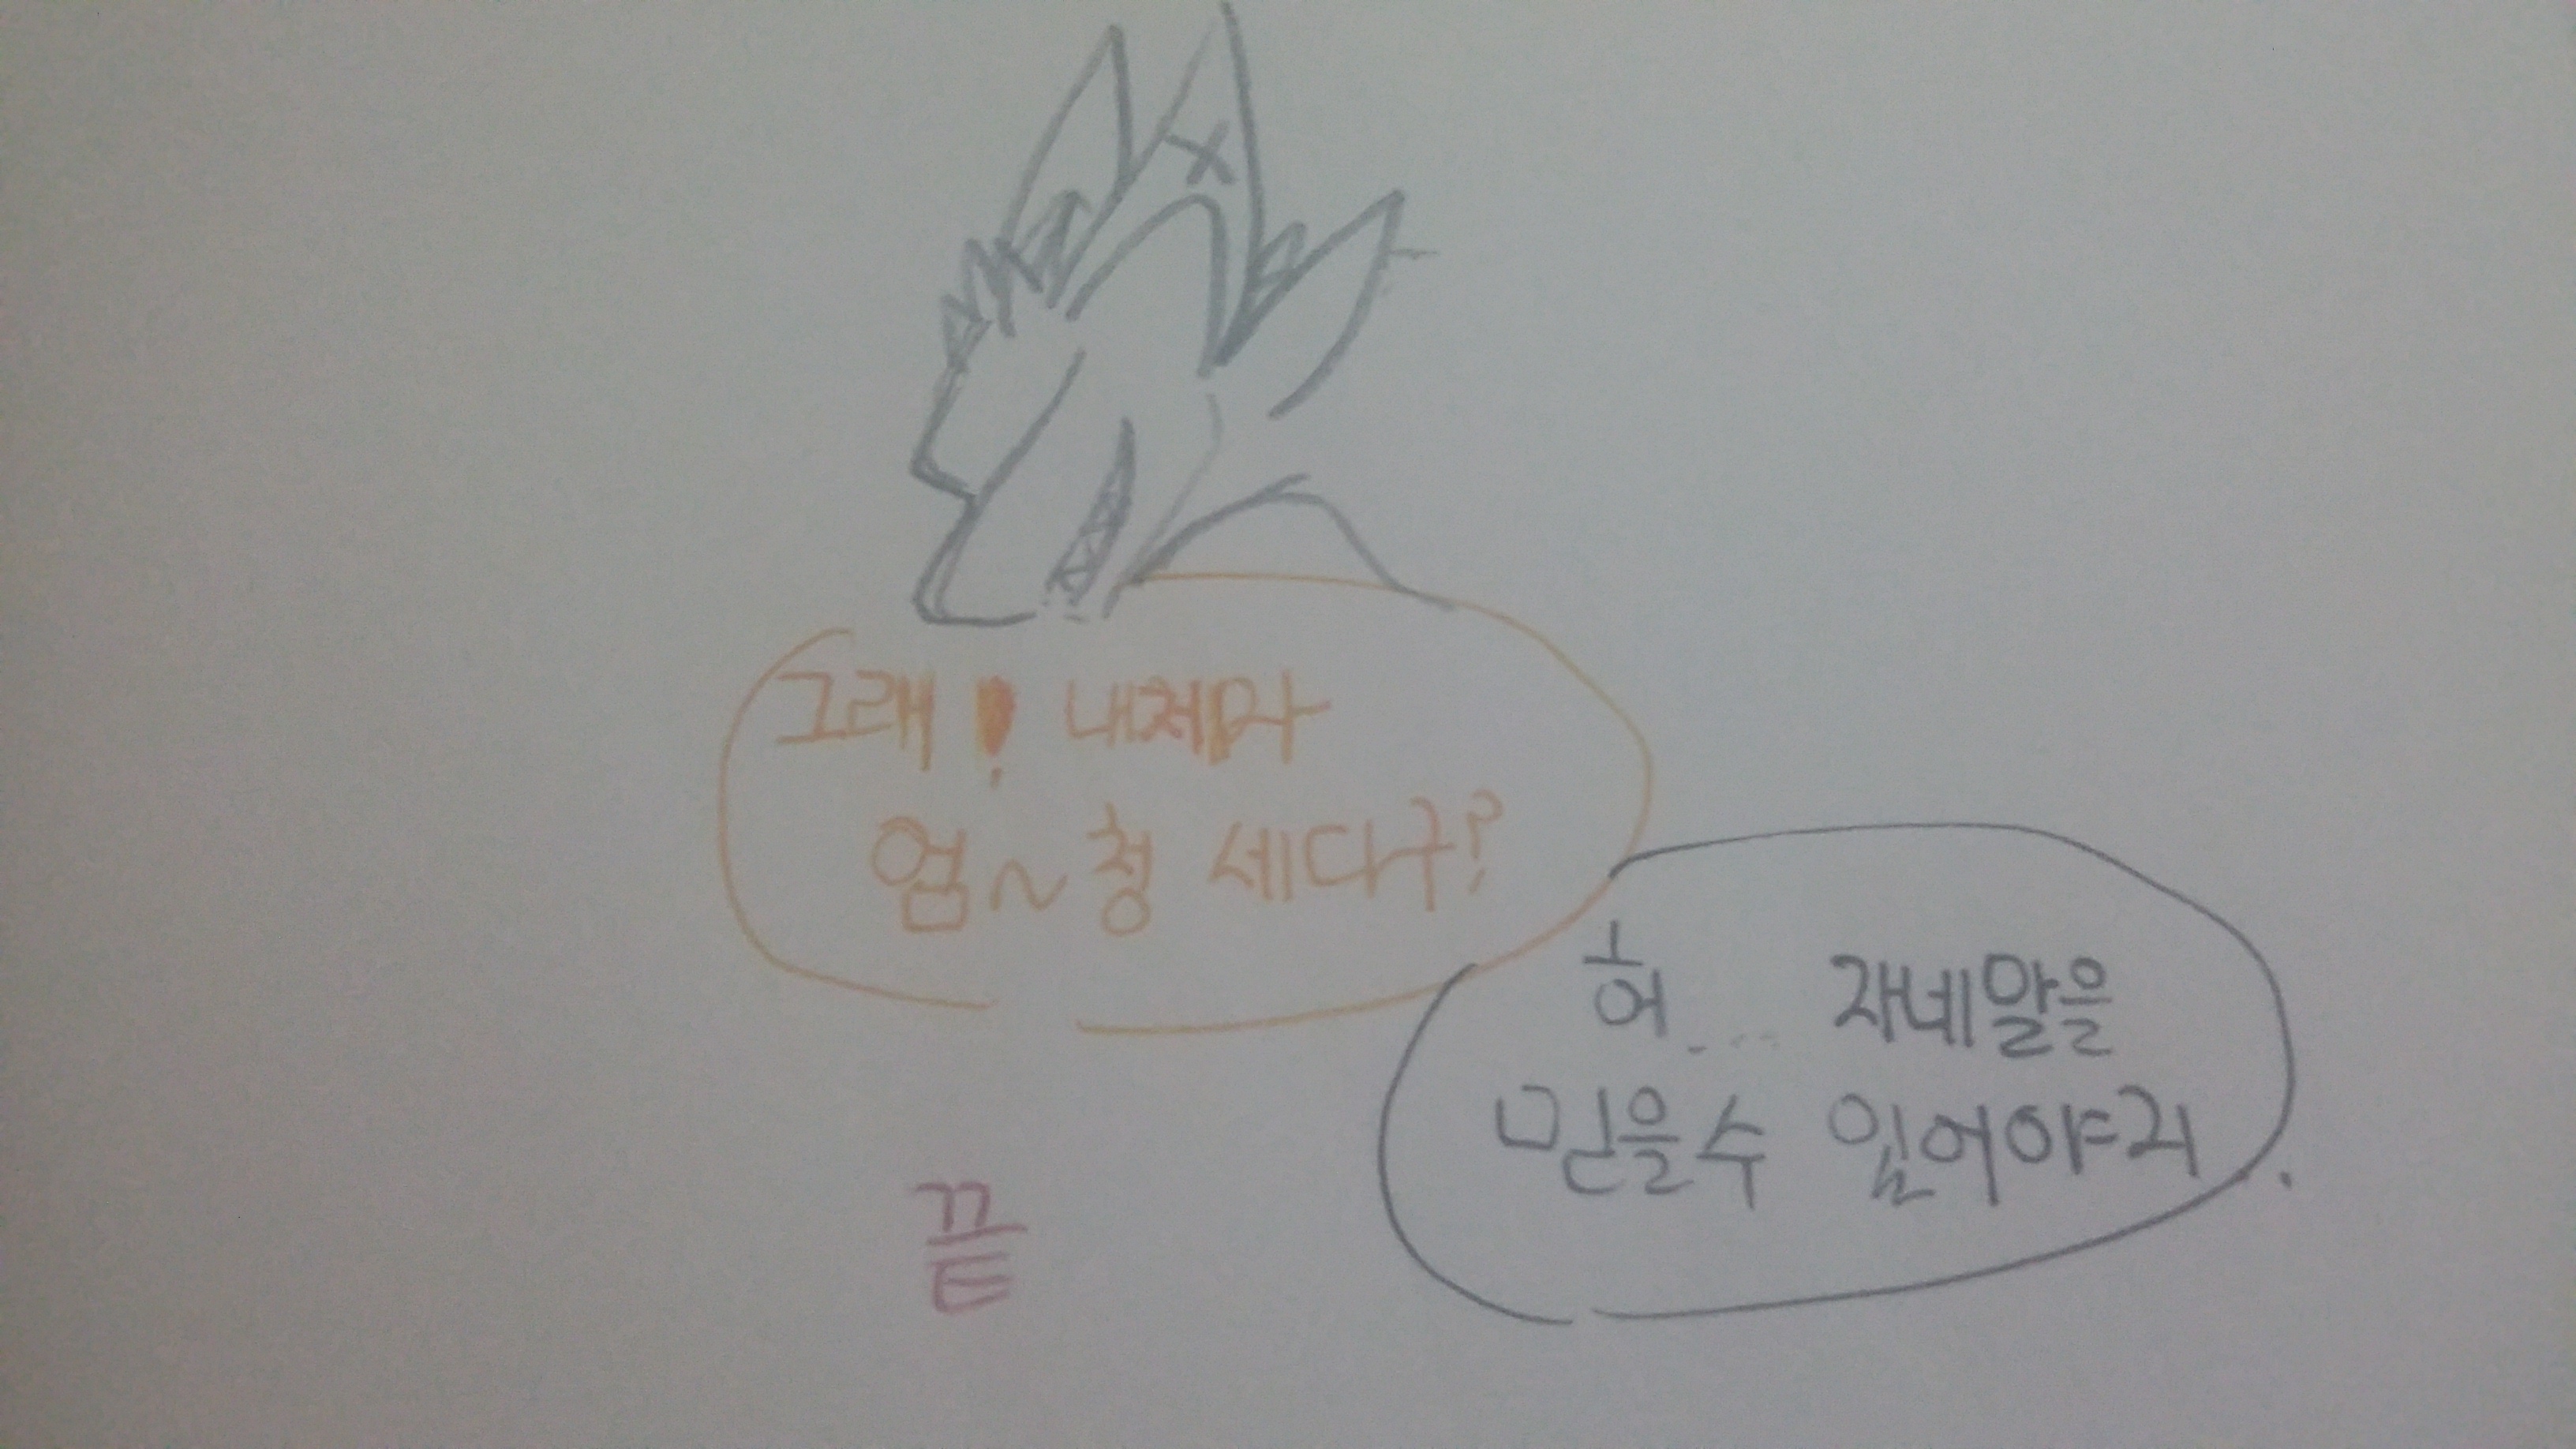 그래! 내제자
엄~청 세다구?
허... 자네말을
믿을수 있어야지.
끝